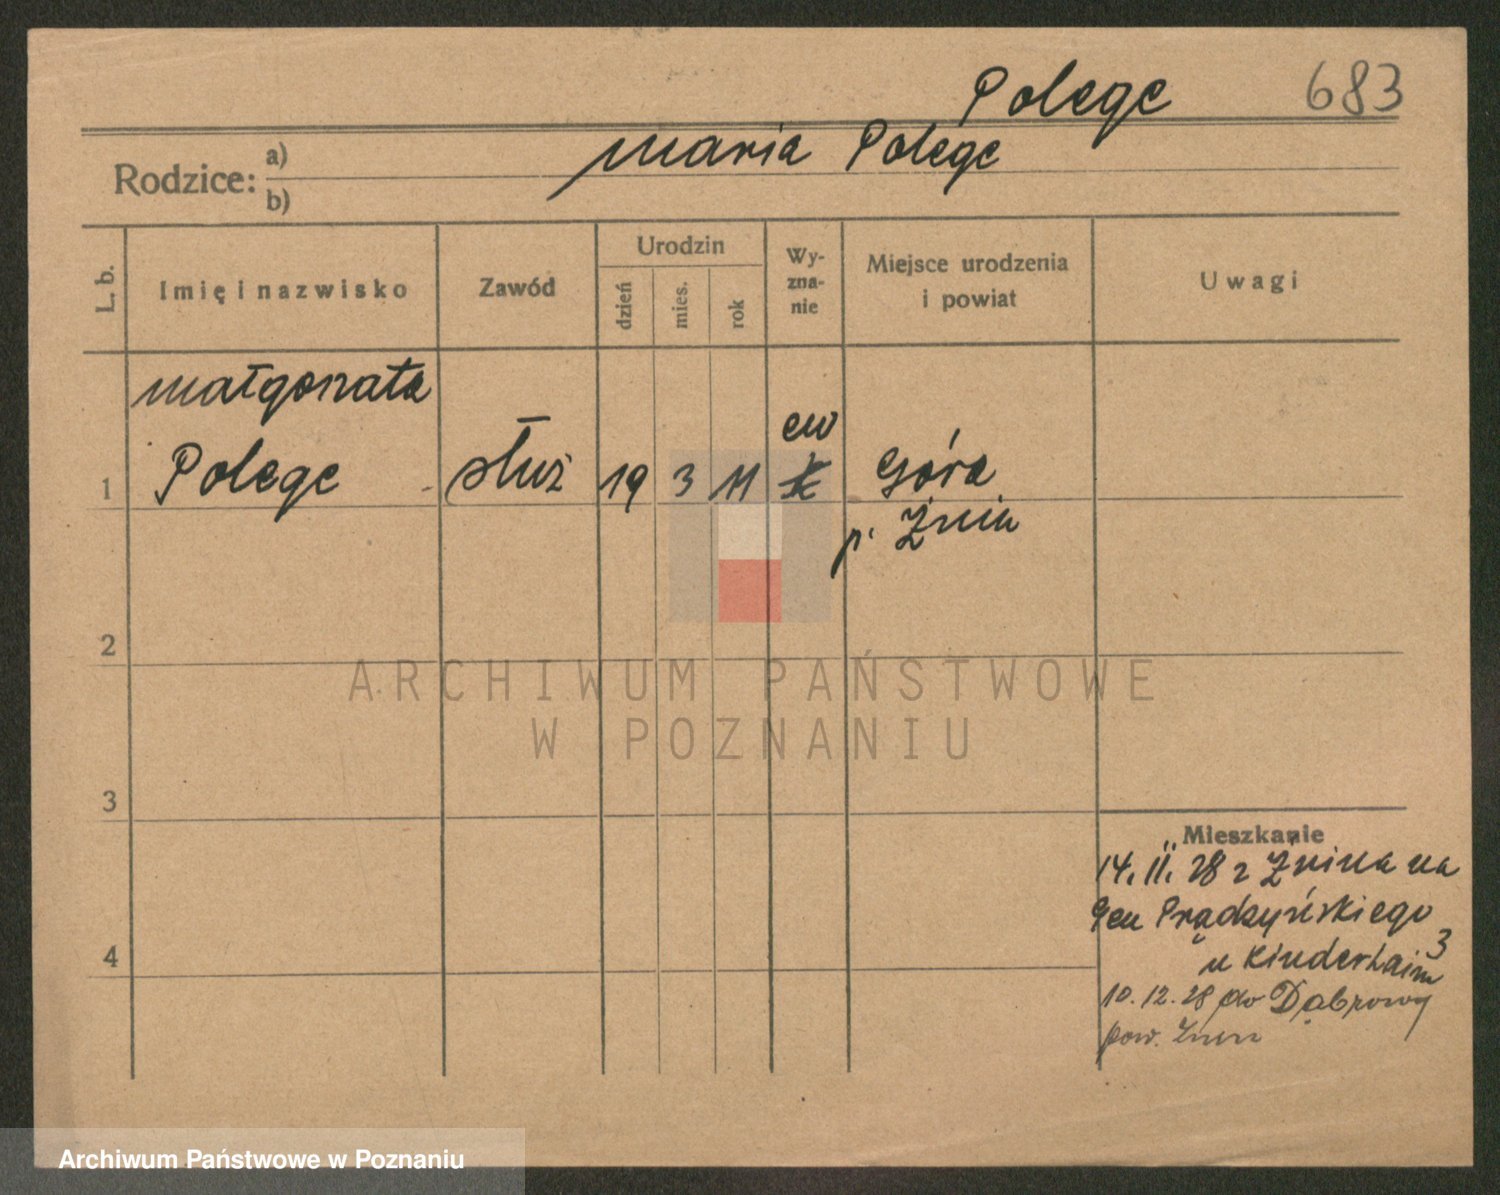 Polege 683
Rodzice: a) Maria Polege
b)
L. b.
Imię i nazwisko
Zawód
Urodzin
dzień
mies.
rok
Wy-
zna-
nie
Miejsce urodzenia
i powiat
Uwagi
Małgorzata
ew
1 Polege służ 19 3 11 k Góra
p. Żnin
2
ARCHIWUM PAŃSTWOWE
W POZNANIU
3
Mieszkanie
14. II. 28 z Żnina na
Gen Prądzyńskiego
3
u Kinderhaim
4
10. 12. 28 do Dąbrowy
pow. Żnin
Archiwum Państwowe w Poznaniu